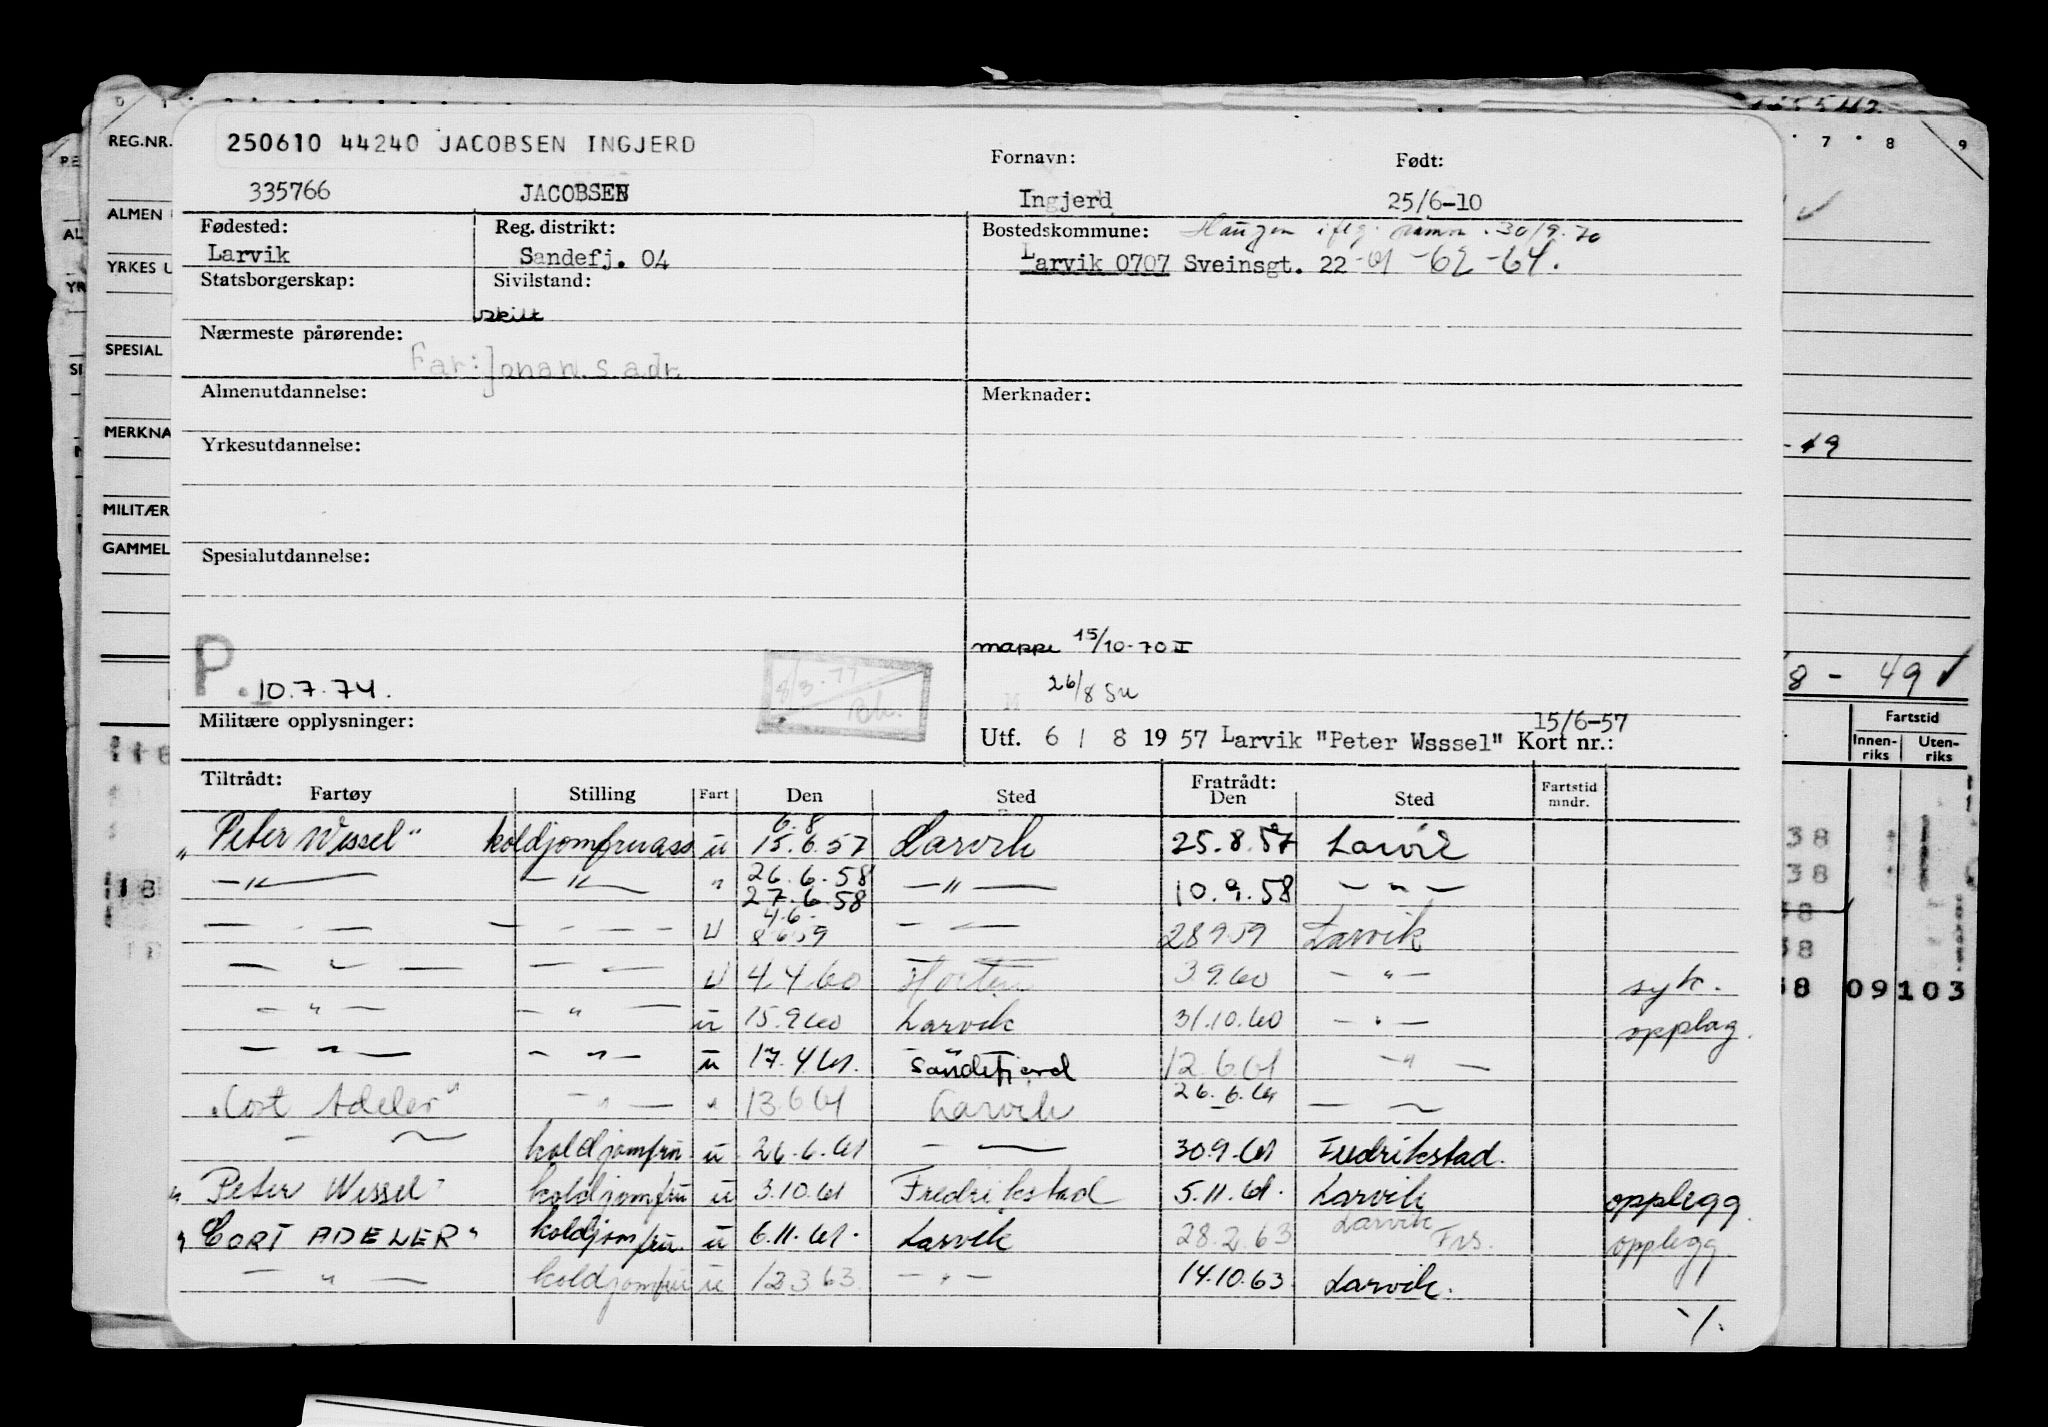 REG.NR.
ALMEN
YRKES U
SPESIAL
MERKNA
MILITÆR
GAMMEL
250610 44240 JACOBSEN INGJERD
Fornavn: Født:
335766 JACOBSEN Ingjerd 25/6-10
Fødested: Reg. distrikt: Bostedskommune: Haugen iflg. 30/9.70
Larvik Sandefj. 04 Larvik 0707 Sveinsgt. 22 -61 -62 -64.
Statsborgerskap: Sivilstand:
skilt
Nærmeste pårørende:
Far: Johan s. adr.
Almenutdannelse: Merknader:
Yrkesutdannelse:
Spesialutdannelse:
mappe 15/10-70 II
P. 10.7.74. 26/8 Su
8/3-77
Militære opplysninger:
15/6-57
Utf. 6 / 8 1957 Larvik "Peter Wsssel" Kort nr.:
Tiltrådt: Fratrådt:
Fartøy Stilling Fart Den Sted Den Sted Fartstid mndr.
6.8
"Peter Wessel" koldjomfruass u 15.6.57 Larvik 25.8.57 Larvik
26.6.58
— " — — " — " 27.6.58 — " — 10.9.58 — " —
4.6.
— - — — - — U 8.6.59 — - — 28959 Larvik
— " — — - — U 4460 Horten 3960 — " — syk.
— " — — " — u 15.960 Larvik 31.10.60 — " — opplag.
— " — — " — u 17.461. Sandefjord 12.6.61 — " —
26.6.61
"Cort Adeler" — " — " 13661 Larvik — " —
— " — koldjomfru u 26.6.61 — - — 30.9.61 Fredrikstad.
"Peter Wessel" koldjomfru u 3.10.61 Fredrikstad 5.11.61. Larvik opplegg.
"CORT ADELER" koldjomfru. u 6.11.61. Larvik 28.2.63 Larvik Frs. opplegg
— " — koldjomfru u 12363. — " — 14.10.63. Larvik.
./.
7 8 9
-49
8 - 49
Fartstid
Innen-riks Uten-riks
38
38
38
38
38 09103
118
18